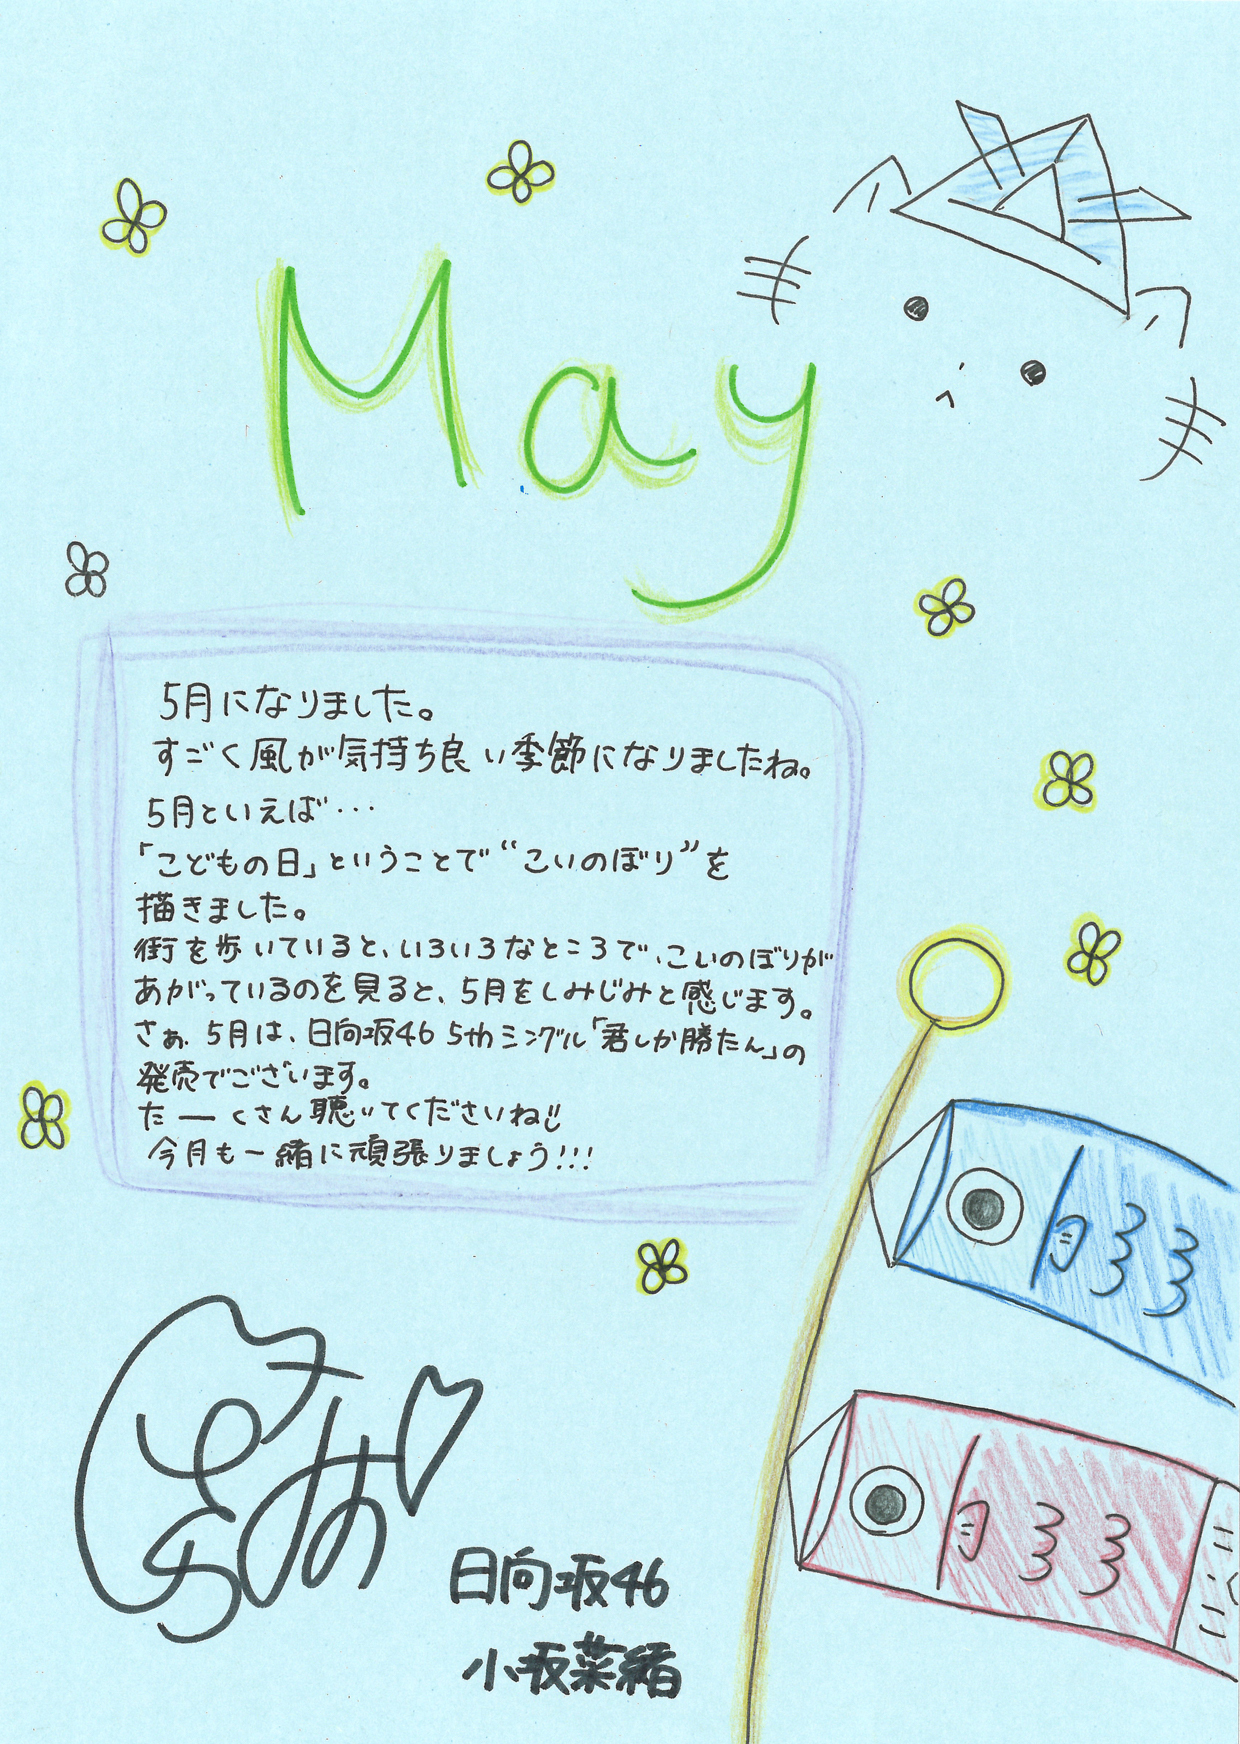 May
5月になりました。
すごく風が気持ち良い季節になりましたね。
5月といえば…
「こどもの日」ということで“こいのぼり”を
描きました。
街を歩いていると、いろいろなところで、こいのぼりが
あがっているのを見ると、5月をしみじみと感じます。
さぁ、5月は、日向坂46 5thシングル「君しか勝たん」の
発売でございます。
たーくさん聴いてくださいね!!
今月も一緒に頑張りましょう!!!
日向坂46
小坂菜緒